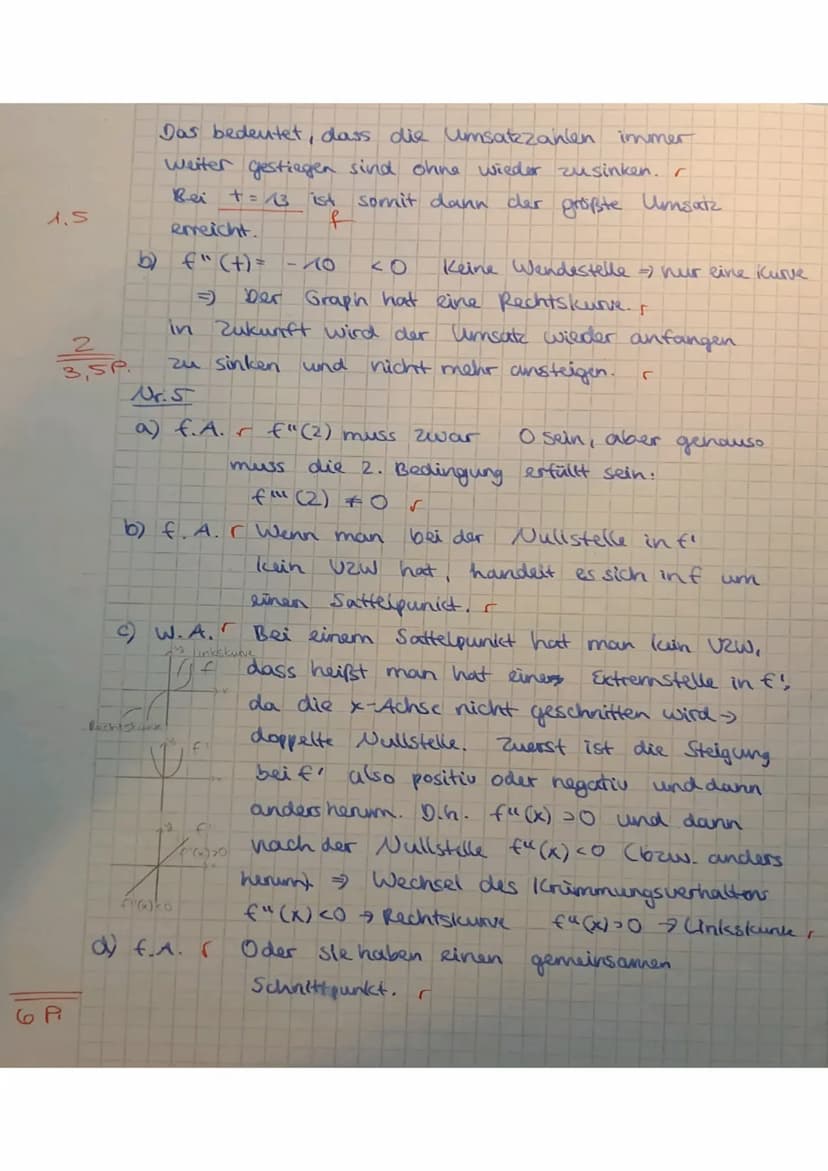 Das bedeutet, dass die Umsatzzahlen immer
weiter gestiegen sind ohne wieder zusinken. r
Bei t = 13 ist somit dann der größte Umsatz
1.5 f
erreicht.
b) f''(t) = -10 <0 Keine Wendestelle => nur eine Kurve
=> Der Graph hat eine Rechtskurve. r
in Zukunft wird der Umsatz wieder anfangen
2
3,5P. zu sinken und nicht mehr ansteigen. r
Nr. 5
a) f.A. r f''(2) muss zwar 0 sein, aber genauso
muss die 2. Bedingung erfüllt sein:
f'''(2) ≠ 0 r
b) f.A. r Wenn man bei der Nullstelle in f'
kein VZW hat, handelt es sich in f um
einen Sattelpunkt. r
c) W.A. r Bei einem Sattelpunkt hat man kein VZW,
Linkskurve
f dass heißt man hat eine Extremstelle in f',
da die x-Achse nicht geschnitten wird →
Rechtskurve
doppelte Nullstelle. Zuerst ist die Steigung
f'
bei f' also positiv oder negativ und dann
andersherum. D.h. f''(x) >0 und dann
f''(x)>0 nach der Nullstelle f''(x) <0 (bzw. anders
herum) => Wechsel des Krümmungsverhaltens
f''(x)<0
f''(x) <0 → Rechtskurve f''(x) >0 → Linkskurve r
d) f.A. r Oder sie haben einen gemeinsamen
Schnittpunkt. r
6 P.